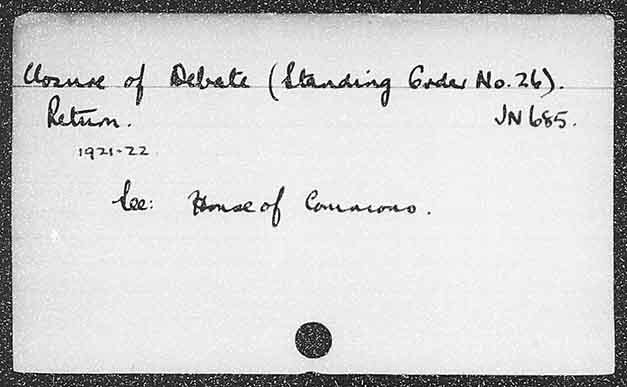 Closure of Debate (Standing Order No. 26).
Return. JN 685.
1921-22
See: House of Commons.